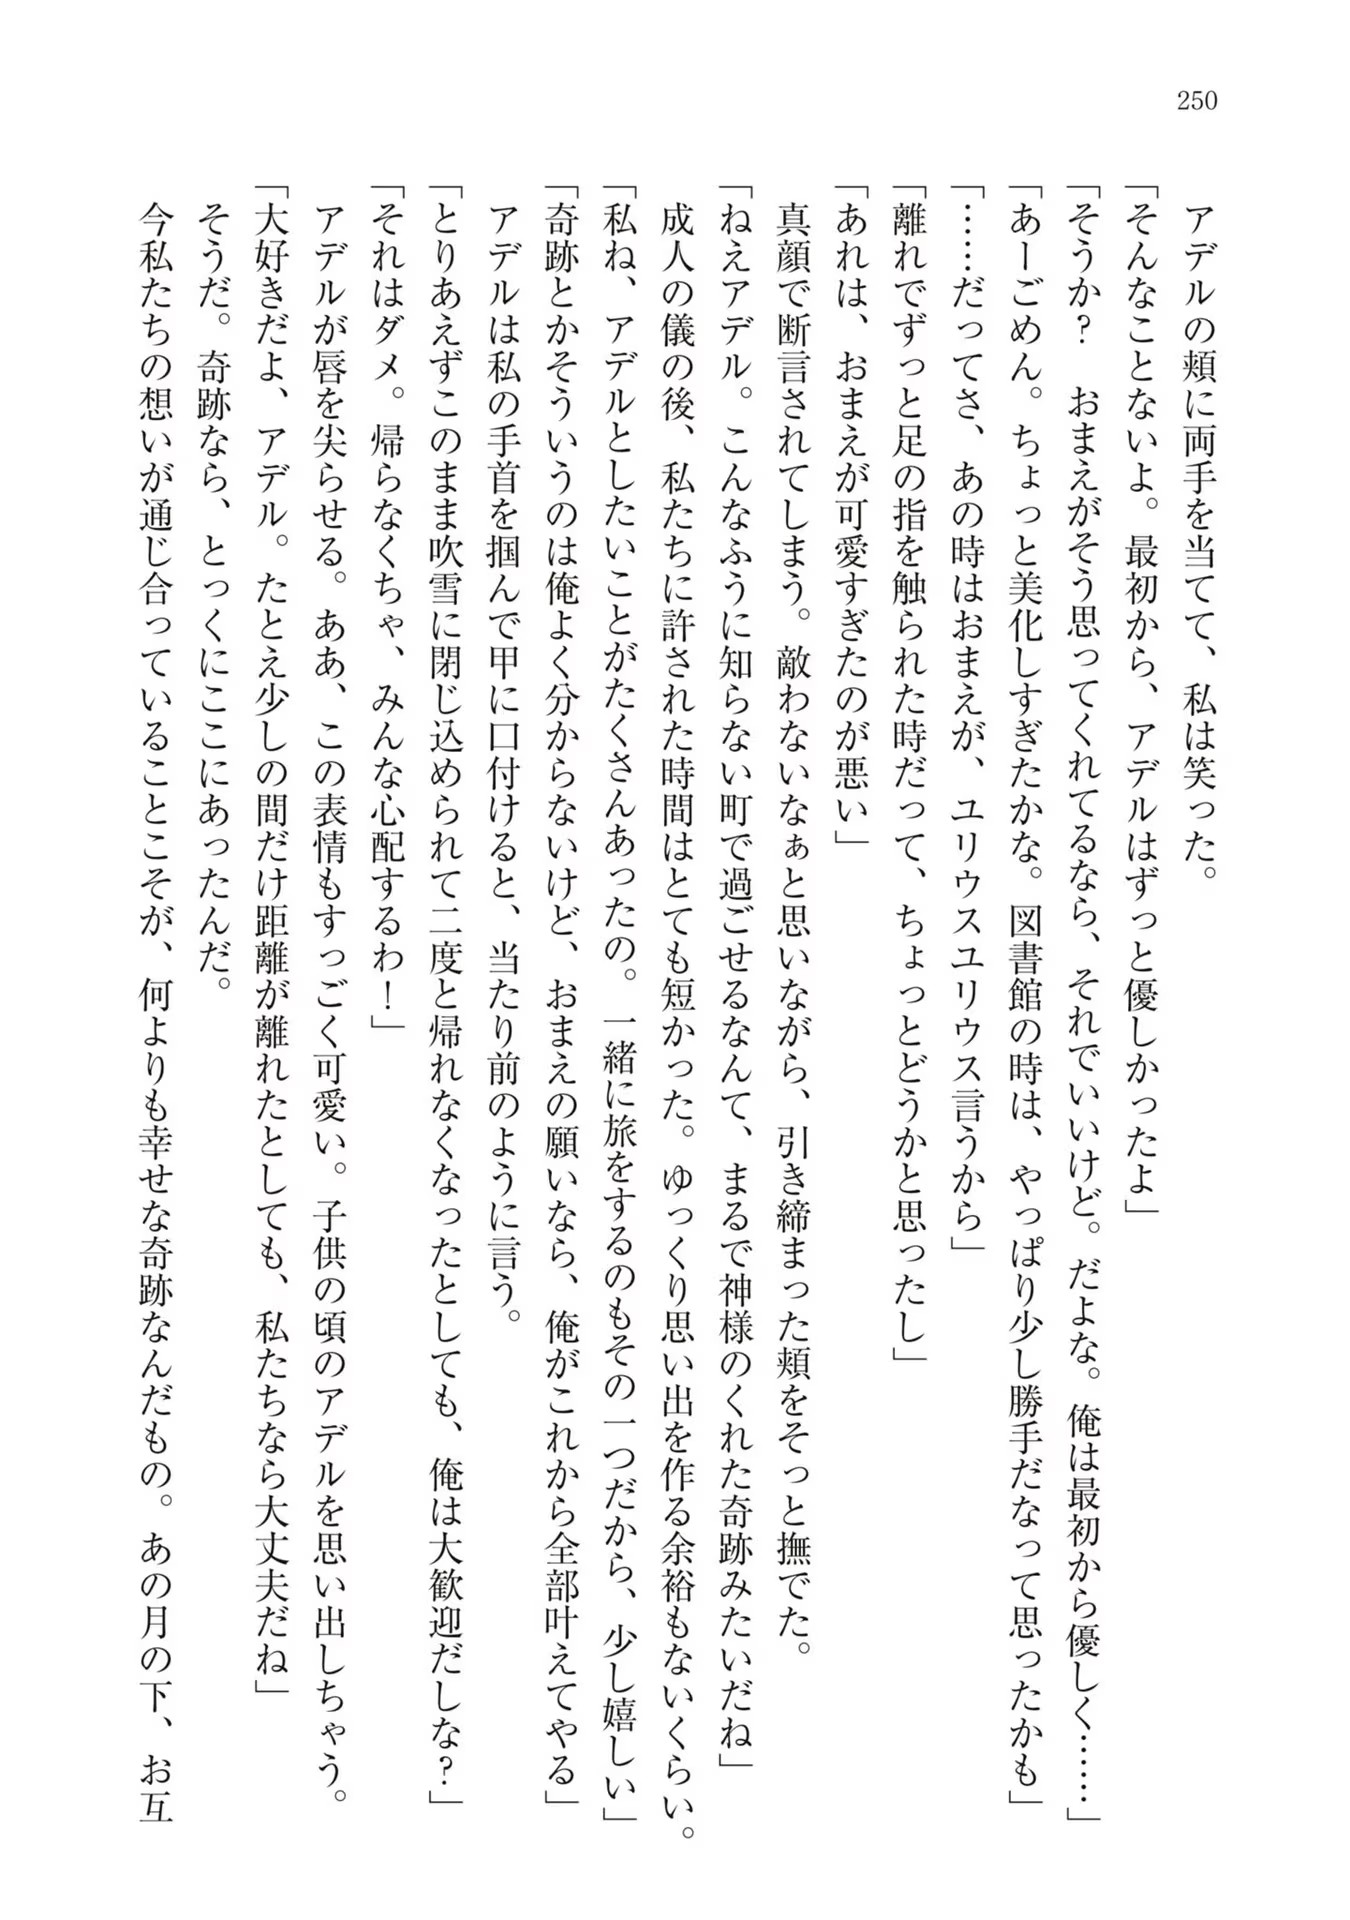 250
アデルの頬に両手を当てて、私は笑った。
「そんなことないよ。最初から、アデルはずっと優しかったよ」
「そうか？　おまえがそう思ってくれてるなら、それでいいけど。だよな。俺は最初から優しく……」
「あーごめん。ちょっと美化しすぎたかな。図書館の時は、やっぱり少し勝手だなって思ったかも」
「……だってさ、あの時はおまえが、ユリウスユリウス言うから」
「離れでずっと足の指を触られた時だって、ちょっとどうかと思ったし」
「あれは、おまえが可愛すぎたのが悪い」
真顔で断言されてしまう。敵わないなぁと思いながら、引き締まった頬をそっと撫でた。
「ねえアデル。こんなふうに知らない町で過ごせるなんて、まるで神様のくれた奇跡みたいだね」
成人の儀の後、私たちに許された時間はとても短かった。ゆっくり思い出を作る余裕もないくらい。
「私ね、アデルとしたいことがたくさんあったの。一緒に旅をするのもその一つだから、少し嬉しい」
「奇跡とかそういうのは俺よく分からないけど、おまえの願いなら、俺がこれから全部叶えてやる」
アデルは私の手首を掴んで甲に口付けると、当たり前のように言う。
「とりあえずこのまま吹雪に閉じ込められて二度と帰れなくなったとしても、俺は大歓迎だしな？」
「それはダメ。帰らなくちゃ、みんな心配するわ！」
アデルが唇を尖らせる。ああ、この表情もすっごく可愛い。子供の頃のアデルを思い出しちゃう。
「大好きだよ、アデル。たとえ少しの間だけ距離が離れたとしても、私たちなら大丈夫だね」
そうだ。奇跡なら、とっくにここにあったんだ。
今私たちの想いが通じ合っていることこそが、何よりも幸せな奇跡なんだもの。あの月の下、お互